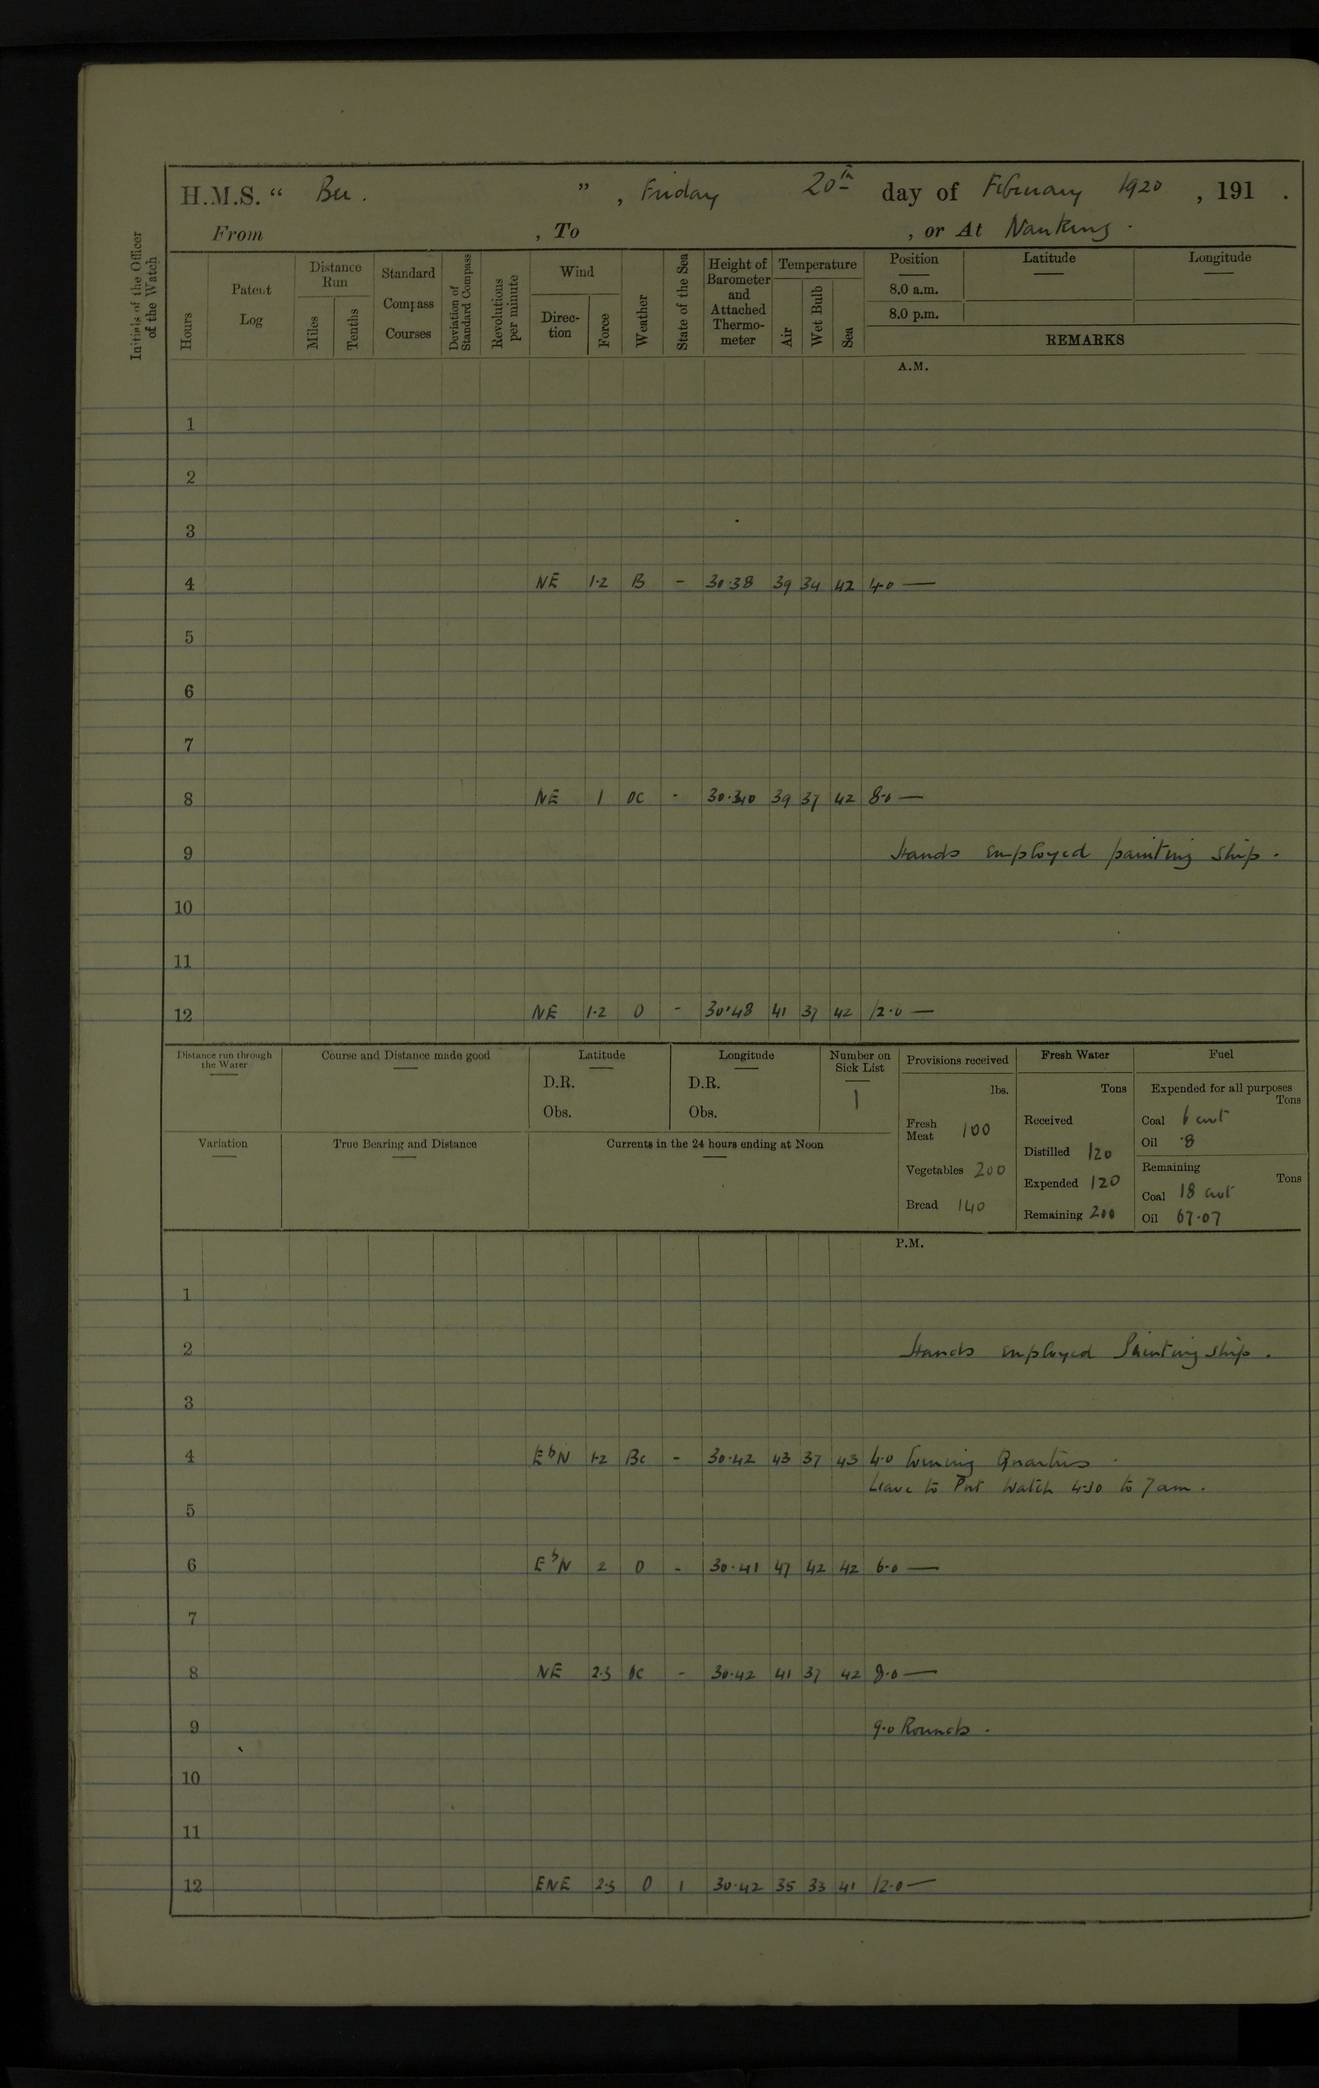 H.M.S. “ Bee. ”, Friday 20th day of February 1920, 191 .
From , To , or At Nanking.
Initials of the Officer of the Watch
Hours
Patent Log
Distance Run
Miles
Tenths
Standard Compass Courses
Deviation of Standard Compass
Revolutions per minute
Wind
Direction
Force
Weather
State of the Sea
Height of Barometer and Attached Thermometer
Temperature
Air
Wet Bulb
Sea
Position
8.0 a.m.
8.0 p.m.
Latitude
Longitude
REMARKS
A.M.
1
2
3
4 NE 1·2 B - 30·38 39 34 42 4·0 —
5
6
7
8 NE 1 OC - 30·340 39 37 42 8·0 —
9 Hands employed painting ship.
10
11
12 NE 1·2 O - 30·48 41 37 42 12·0 —
Distance run through the Water
Course and Distance made good
Latitude
D.R.
Obs.
Longitude
D.R.
Obs.
Number on Sick List
1
Variation
True Bearing and Distance
Currents in the 24 hours ending at Noon
Provisions received
lbs.
Fresh Meat 100
Vegetables 200
Bread 140
Fresh Water
Tons
Received
Distilled 120
Expended 120
Remaining 200
Fuel
Expended for all purposes
Tons
Coal 6 cwt
Oil ·8
Remaining
Tons
Coal 18 cwt
Oil 67·07
P.M.
1
2 Hands employed Painting ship.
3
4 EbN 1·2 Bc - 30·42 43 37 43 4·0 Evening Quarters.
Leave to Port Watch 4·30 to 7am.
5
6 EbN 2 O - 30·41 47 42 42 6·0 —
7
8 NE 2·3 OC - 30·42 41 37 42 8·0 —
9 9·0 Rounds.
10
11
12 ENE 2·3 O 1 30·42 35 33 41 12·0 —